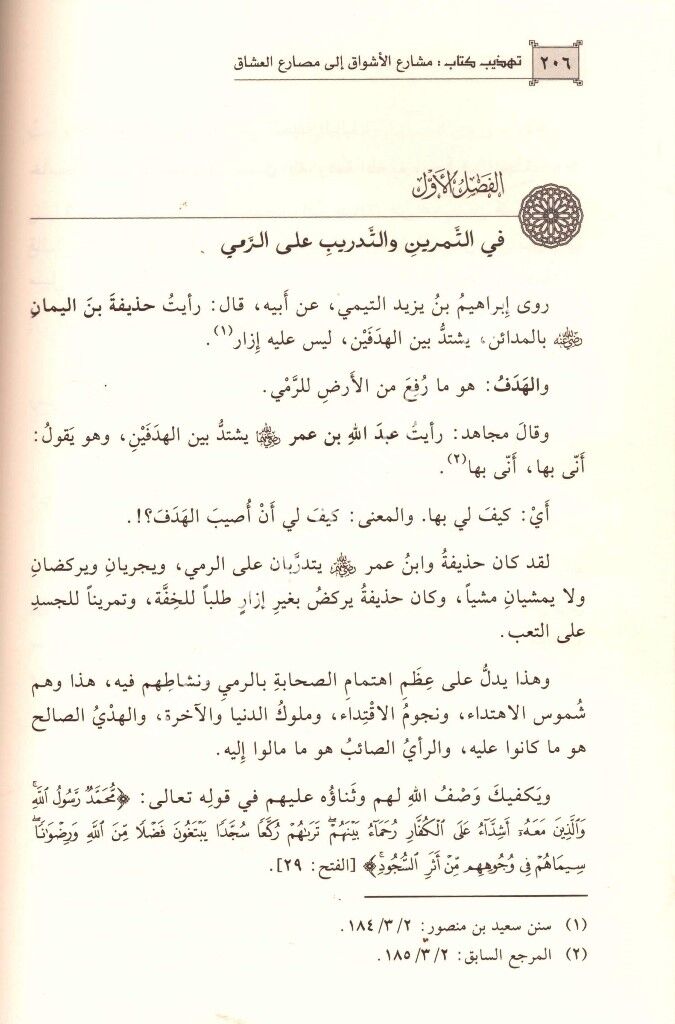 ٢٠٦
تهذيب كتاب: مشارع الأشواق إلى مصارع العشاق
الفصل الأول
في التَّمرينِ والتَّدريبِ على الرَّمي
روى إبراهيمُ بنُ يزيد التيمي، عن أَبيه، قال: رأيتُ حذيفةَ بنَ اليمانِ
رضي الله عنه بالمدائن، يشتدُّ بين الهدَفَيْن، ليس عليه إزار(١).
والهَدَفُ: هو ما رُفِعَ من الأَرضِ للرَّمْي.
وقالَ مجاهد: رأيتُ عبدَ اللهِ بن عمر رضي الله عنهما يشتدُّ بين الهدَفَيْنِ، وهو يَقولُ:
أَنّى بها، أَنّى بها(٢).
أَيْ: كيفَ لي بها. والمعنى: كيفَ لي أَنْ أُصيبَ الهَدَفَ؟!.
لقد كان حذيفةُ وابنُ عمر رضي الله عنهم يتدرَّبان على الرمي، ويجريانِ ويركضانِ
ولا يمشيانِ مشياً، وكان حذيفةُ يركضُ بغيرِ إزارٍ طلباً للخِفَّة، وتمريناً للجسدِ
على التعب.
وهذا يدلُّ على عِظَمِ اهتمامِ الصحابةِ بالرميِ ونشاطِهم فيه، هذا وهم
شُموس الاهتداء، ونجومُ الاقْتِداء، وملوكُ الدنيا والآخرة، والهدْيُ الصالح
هو ما كانوا عليه، والرأيُ الصائبُ هو ما مالوا إليه.
ويَكفيكَ وَصْفُ اللهِ لهم وثَناؤُه عليهم في قولِه تعالى: ﴿مُّحَمَّدٌ رَّسُولُ ٱللَّهِۚ
وَٱلَّذِينَ مَعَهُۥٓ أَشِدَّآءُ عَلَى ٱلْكُفَّارِ رُحَمَآءُ بَيْنَهُمْۖ تَرَىٰهُمْ رُكَّعًا سُجَّدًا يَبْتَغُونَ فَضْلًا مِّنَ ٱللَّهِ وَرِضْوَٰنًاۖ
سِيمَاهُمْ فِى وُجُوهِهِم مِّنْ أَثَرِ ٱلسُّجُودِۚ﴾ [الفتح: ٢٩].
(١) سنن سعيد بن منصور: ٢/ ٣/ ١٨٤.
(٢) المرجع السابق: ٢/ ٣/ ١٨٥.